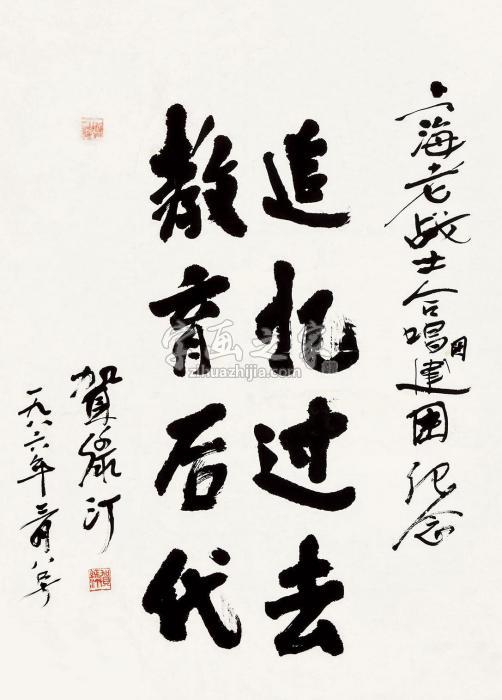 上海老战士合唱团建团纪念
追忆过去
教育后代
賀绿汀
一九八六年三月八号
字画之家
zihuazhijia.com